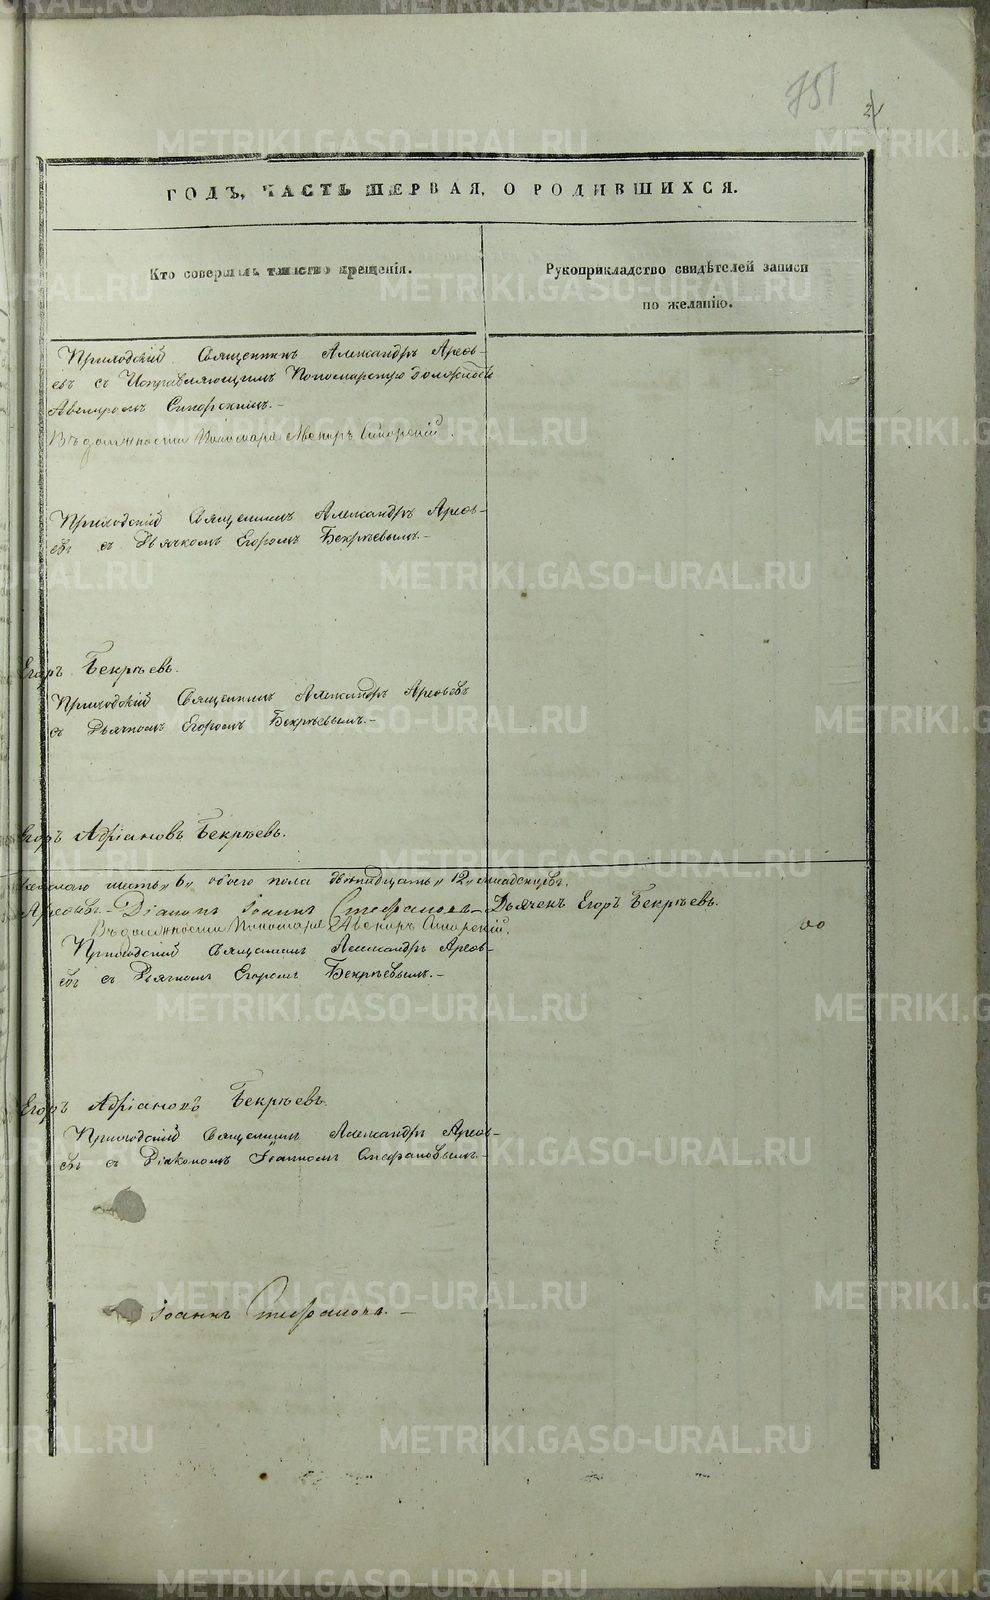 751
ГОДЪ, ЧАСТЬ ПЕРВАЯ, О РОДИВШИХСЯ.
Кто совершалъ таинство крещенія.
Рукоприкладство свидѣтелей записи по желанію.
Приходскій Священникъ Александръ Арефь-
евъ съ Исправляющимъ Пономарскую должность
Авениромъ Сикорскимъ.-
Въ должности Пономаря Авениръ Сикорскій.
Приходскій Священникъ Александръ Арефь-
евъ съ Дьячкомъ Егоромъ Бекрѣевымъ.-
Егоръ Бекрѣевъ.
Приходскій Священникъ Александръ Арефьевъ
съ Дьячкомъ Егоромъ Бекрѣевымъ.-
Егоръ Адріановъ Бекрѣевъ.
шесть „6„ обоего пола двенадцать „12„ младенцевъ.
Арефьевъ.- Діаконъ Іоаннъ Стефановъ.- Дьячекъ Егоръ Бекрѣевъ.
Въ должности Пономаря Авениръ Сикорскій.
Приходскій Священникъ Александръ Арефь-
евъ съ Дьячкомъ Егоромъ Бекрѣевымъ.-
Егоръ Адріановъ Бекрѣевъ.
Приходскій Священникъ Александръ Арефь-
евъ съ Діакономъ Іоанномъ Стефановымъ.-
Іоаннъ Стефановъ.-
METRIKI.GASO-URAL.RU